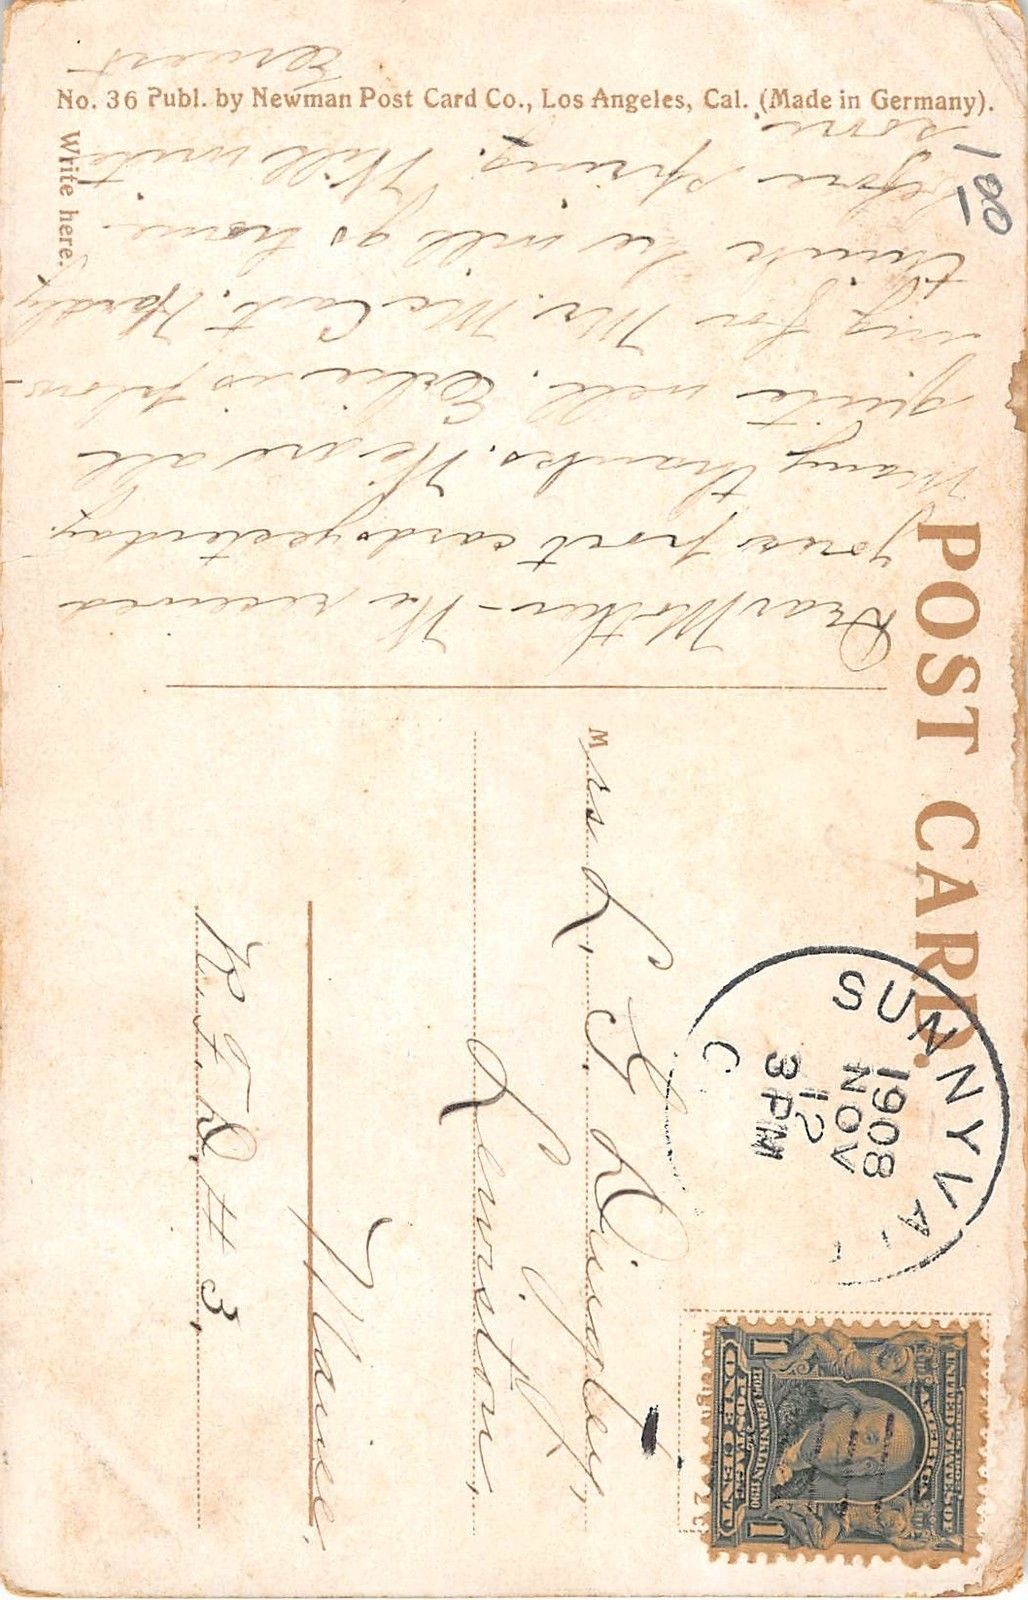 POST CARD.
No. 36 Publ. by Newman Post Card Co., Los Angeles, Cal. (Made in Germany).
Write here.
Dear Mother - We received
your post cards yesterday.
Many thanks. We are all
quite well. Erlie is plow-
ing for Mr. McCart. Hardly
think he will go home
before spring. Will write
soon
Ernest
1 00
SUNNYVA
1908
NOV
12
3 PM
C
UNITED STATES OF
AMERICA
FRANKLIN
POSTAGE
ONE CENT
1 1
Mrs L. G. Dingley,
Lewiston,
Maine.
R.F.D. # 3,